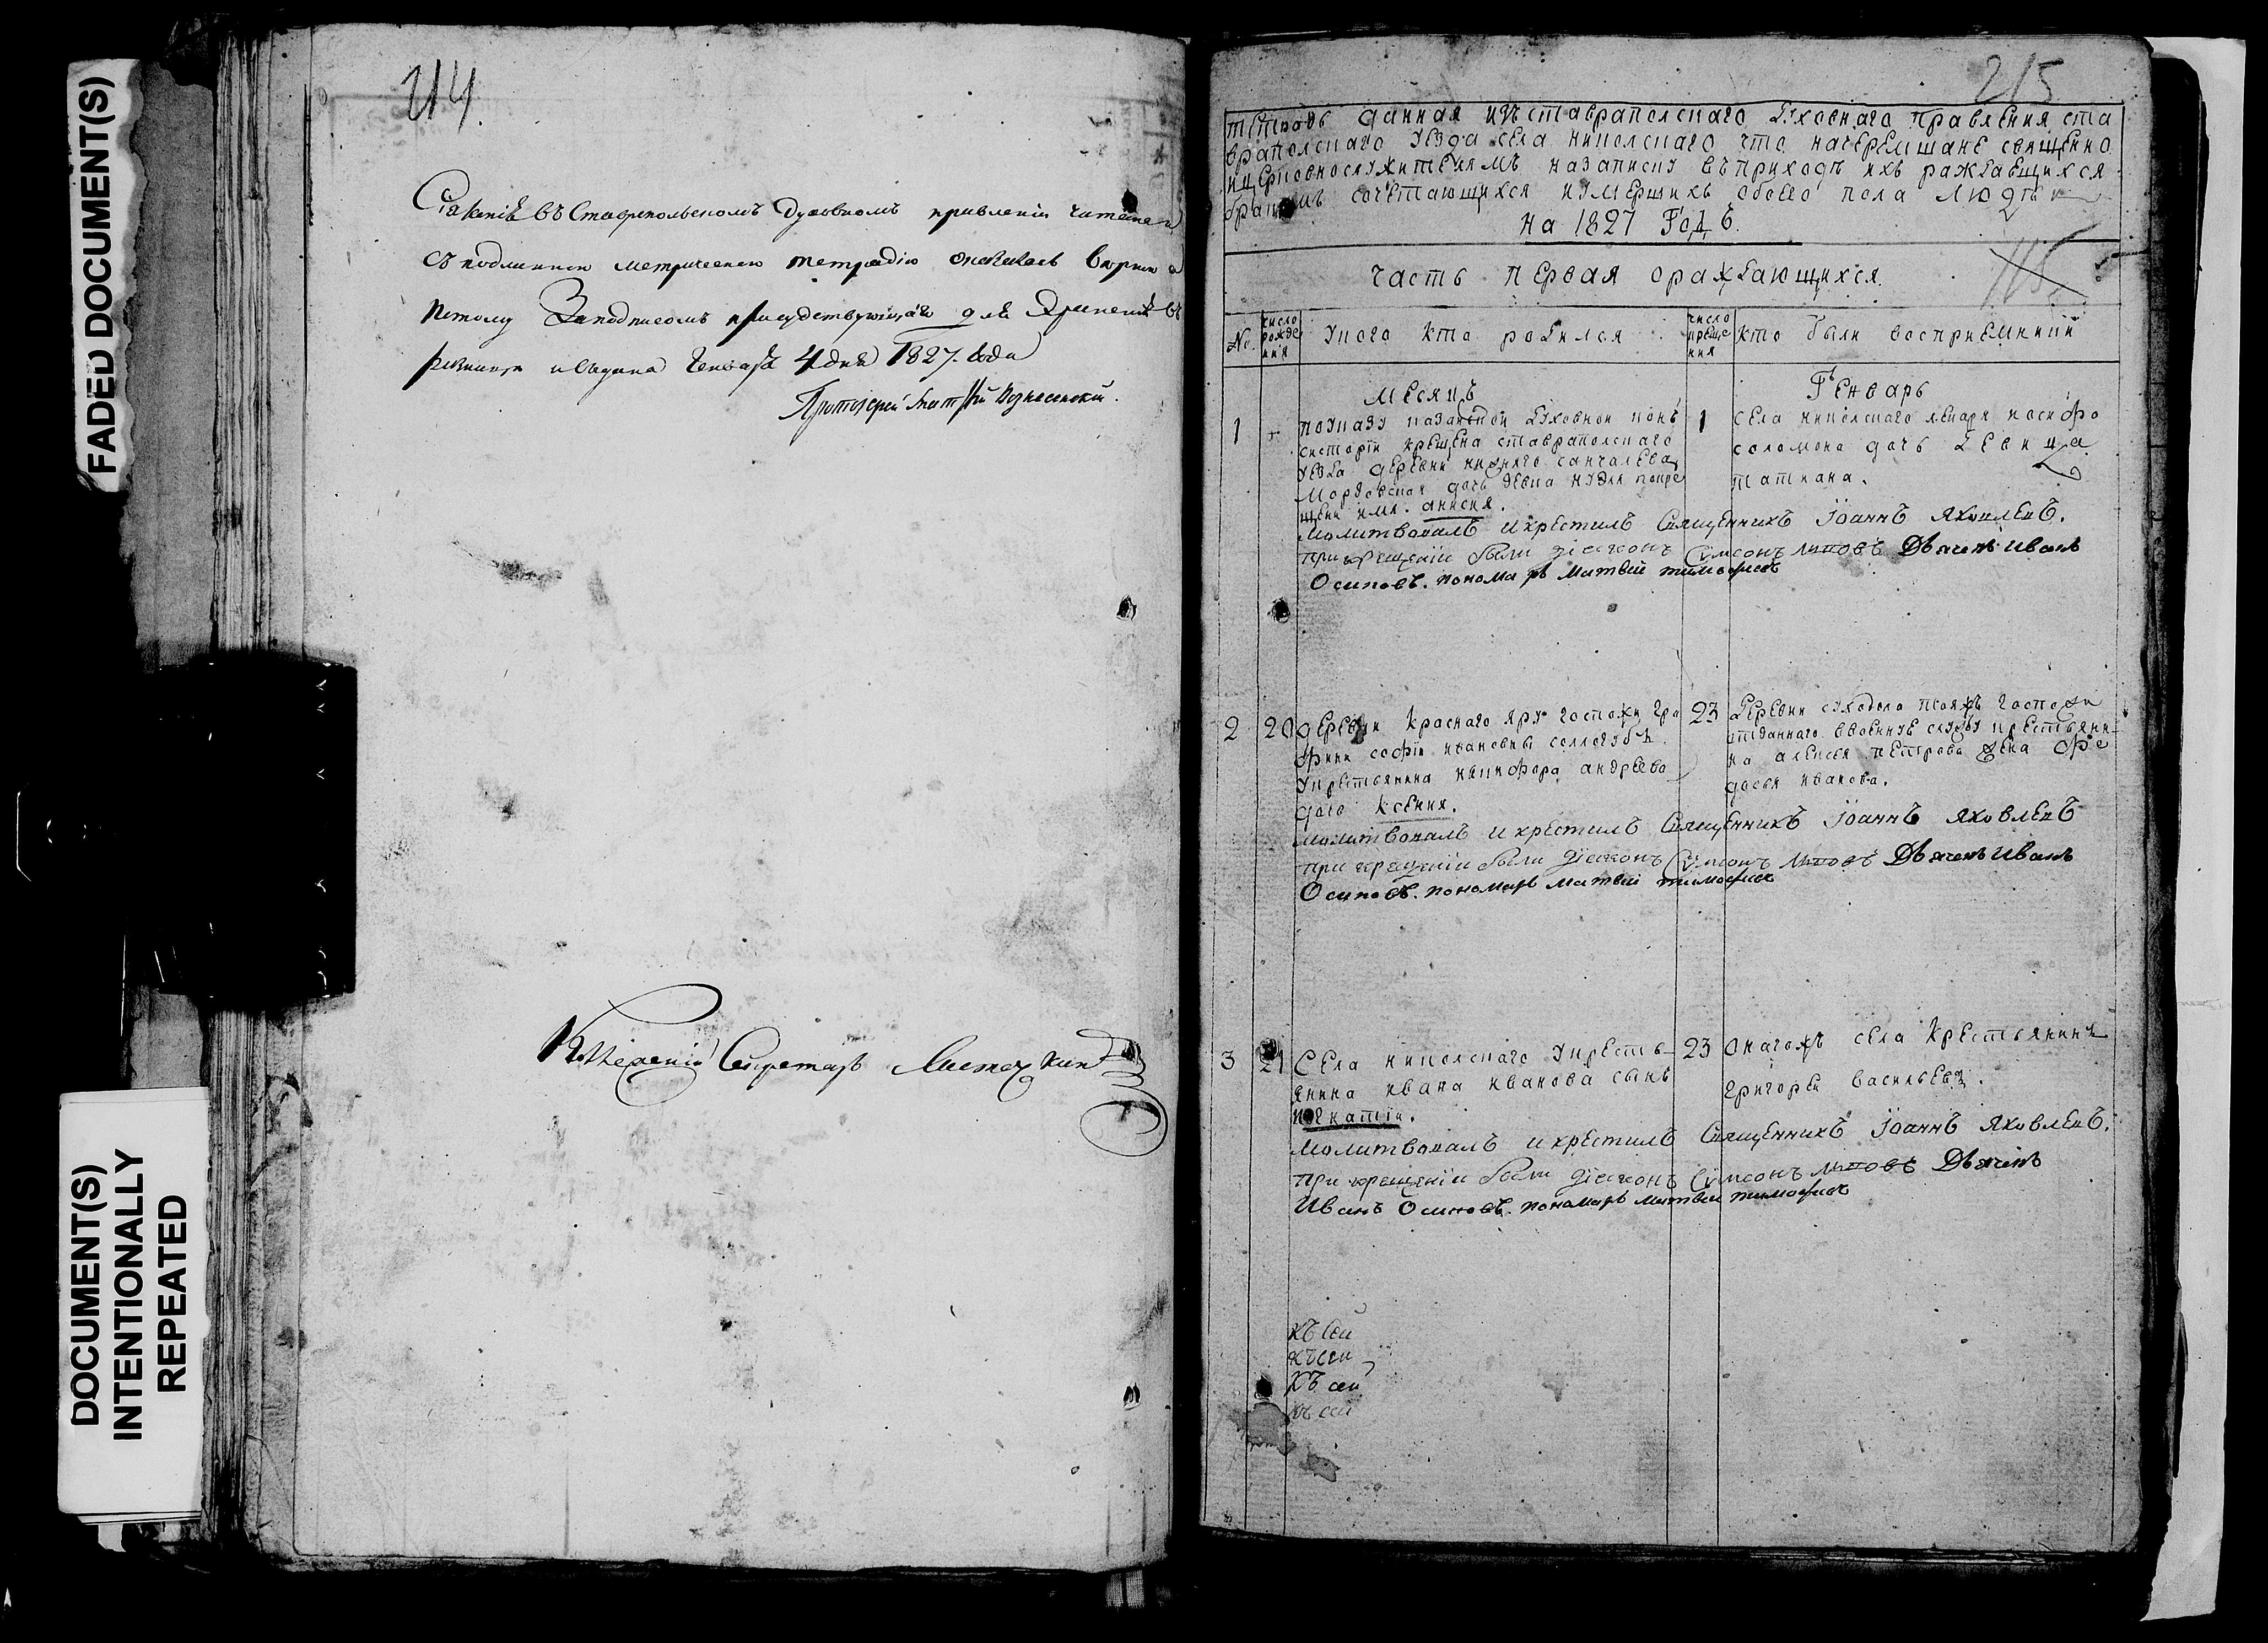 FADED DOCUMENT(S)
DOCUMENT(S)
INTENTIONALLY
REPEATED
214.
въ Ставропольскомъ духовномъ правленіи
съ подлинною метрическою тетрадію оказалась верною а
потому За подписомъ присудствующаго для храненія въ
ризницы и выдана Генваря 4 дня 1827. года
Протоіерей Вознесенской.
Секретарь
215
тетрадь данная изъ ставраполскаго духовнаго правления ста
враполскаго уезда села николскаго что начеремшане священно
ицерковнослужителямъ назаписку въприходъ ихъ раждаещихся
бракомъ сочетающихся иумершихъ обоего пола людѣи
на 1827 Годъ.
часть первая ораждающихся.
№.
число рожде ния
укого кто родился
число креще ния
кто были восприемники
Месяцъ
Генварь
1
поуказу казанской духовной кон
систории крещена ставраполскаго
уезда деревни нижняго санчалеева
Мордовская дочь девка покре
щени имя. анисия.
1
села николскаго лекаря
соломона дочь девица
татиана.
Молитвовалъ и крестилъ Священникъ Іоаннъ Яковлевъ.
при крещеніи были діаконъ Сумеонъ Дьячекъ Иванъ
Осиповъ. пономарь матвей тимофиевъ
2
20
деревни Краснаго яру госпожи гра
фини софіи ивановны сологубъ
укрестьянина никифора андреева
дочь ксения.
23
деревни суходола тояжъ госпожи
отданнаго ввоенную службу крестьяни
на алексея петрова жена фе
досья иванова.
молитвовалъ и крестилъ Священникъ Іоаннъ Яковлевъ
при крещеніи были діаконъ Сумеонъ Дьячекъ Иванъ
Осиповъ. пономарь матвей тимофиевъ
3
21
Села николскаго укресть
янина ивана иванова сынъ
игнатіи.
23
Онагожъ села крестьянинъ
григореи васильевъ.
Молитвовалъ и крестилъ Священникъ Іоаннъ Яковлевъ.
при крещеніи были діаконъ Сумеонъ Дьячекъ
Иванъ Осиповъ. пономарь матвей тимофиевъ
къ сеи
къ сеи
къ сеи
къ сеи